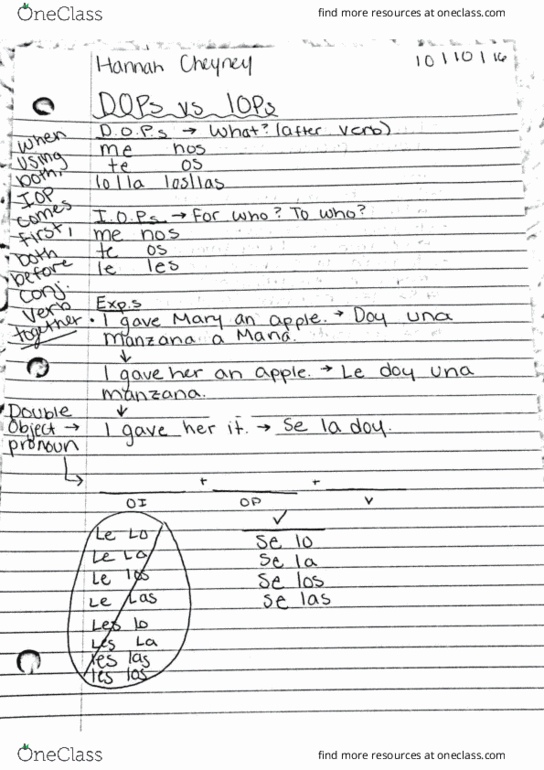 OneClass
find more resources at oneclass.com
Hannah Cheyney
10/10/16
DOPs vs IOPs
D.O.P.s → What? (after verb)
me nos
te os
lo/la los/las
I.O.P.s → For who? To who?
me nos
te os
le les
When
using
both,
IOP
comes
first,
both
before
conj.
verb
together
Exp.s
• I gave Mary an apple. → Doy una
manzana a Maria.
↓
I gave her an apple. → Le doy una
manzana.
↓
Double
Object →
pronoun
I gave her it. → Se la doy.
+ +
OI OP V
Le Lo
Le La
Le los
Le Las
Les lo
Les La
les las
les las
✓
Se lo
Se la
Se los
Se las
OneClass
find more resources at oneclass.com